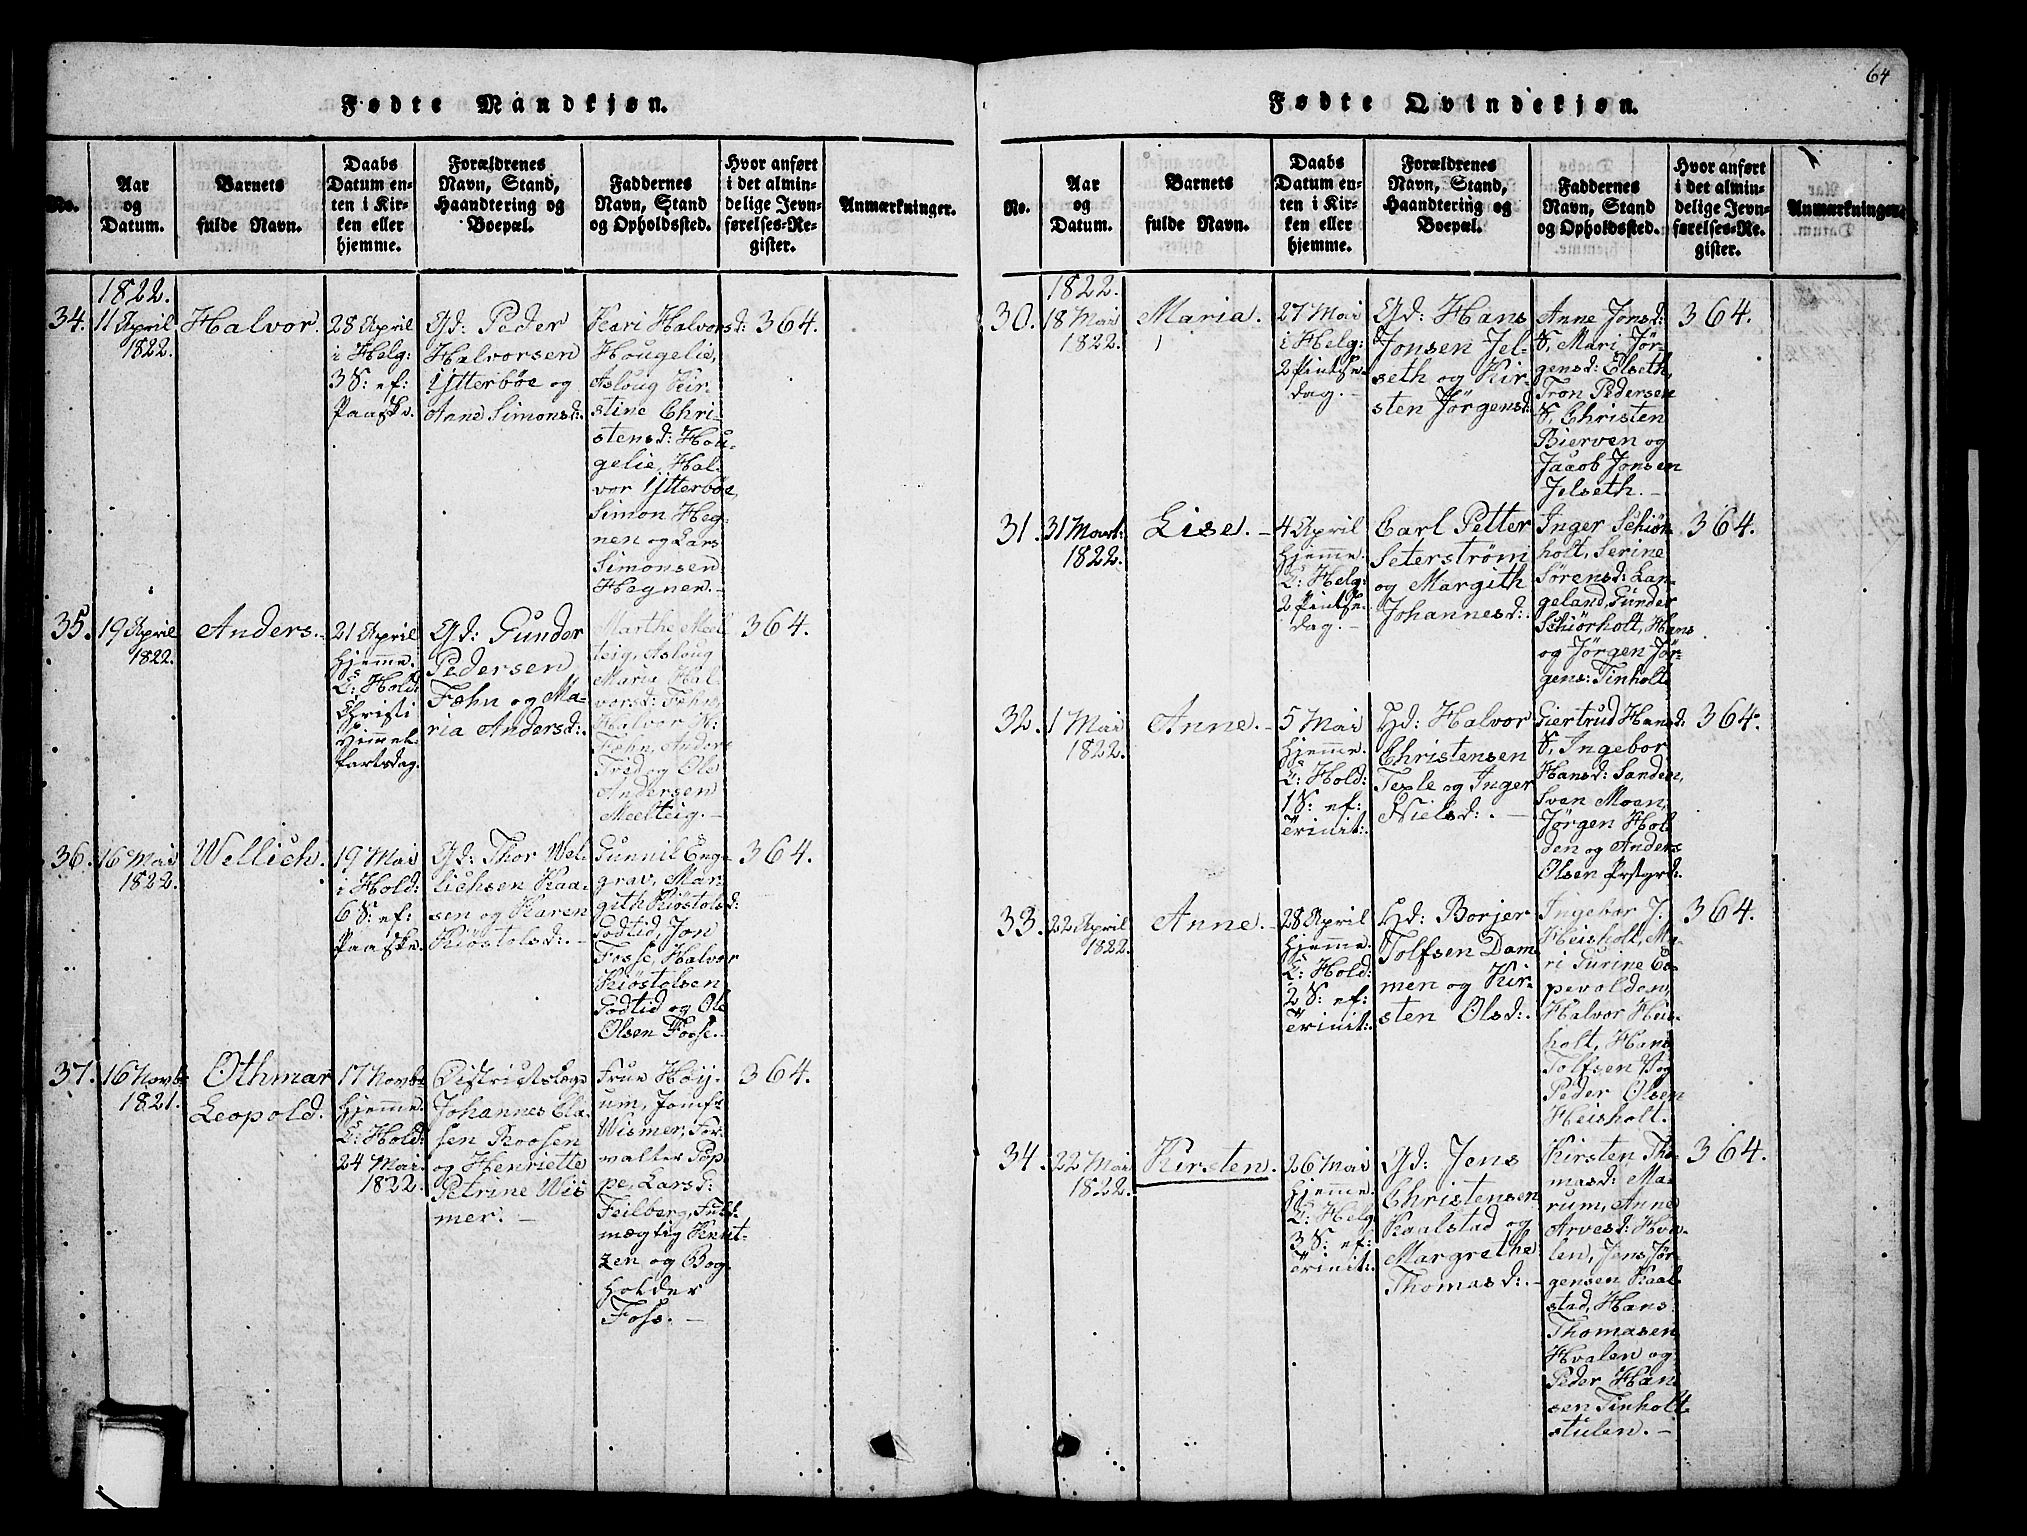 64
Fødte Mandkjøn.
No.
Aar
og
Datum.
Barnets
fulde Navn.
Daabs
Datum en-
ten i Kir-
ken eller
hjemme.
Forældrenes
Navn, Stand,
Haandtering og
Boepæl.
Faddernes
Navn, Stand
og Opholdssted.
Hvor anført
i det almin-
delige Jevn-
førelses-Re-
gister.
Anmærkninger.
1822.
34.
11 April
1822.
Halvor.
28 April
i Helg:
3 S: ef:
Paaske.
Gd: Peder
Halvorsen
Ytterbøe og
Anne Simonsd:
Kari Halvorsd:
Hougelie,
Asloug Kir-
stine Chri-
stensd: Hou-
gelie, Hal-
vor Ytterbøe,
Simon Heg-
nen og Lars
Simonsen
Hegnen. –
364.
35.
19 April
1822.
Anders. –
21 April
hjemme.
C: Hold:
Christi
Himmel-
fartsdag.
Gd: Gunder
Pedersen
Fæhn og Ma-
ria Andersd:
Marthe Meel-
teig, Asloug
Maria Hal-
vorsd: Fæhn,
Halvor N:
Fæhn, Anders
Tred og Ole
Andersen
Meelteig. –
364.
36.
16 Mai
1822.
Wellich.
19 Mai
i Hold:
6 S: ef:
Paaske.
Gd: Thor Wel-
lichsen Kaa-
sen og Karen
Kiøstolsd: –
Gunnil Eng-
grav, Mar-
gith Kiøstolsd:
Godtid, Jon
Fosse, Halvor
Kiøstolsen
Godtid og Ole
Olsen Fosse. –
364.
37.
16 Novbr
1821.
Othmar
Leopold.
17 Novbr
hjemme.
C: Hold:
24 Mai
1822.
Districtslæge
Johannes Cla-
sen Roosen
og Henriette
Petrine Wis-
mer. –
Frue Høij-
um, Jomfr
Wismer, For-
valter Pop-
pe, Lars d:
Feilberg, Fuld-
mægtig Knut-
zen og Bog-
holder
Foss. –
364.
Fødte Qvindekjøn.
No.
Aar
og
Datum.
Barnets
fulde Navn.
Daabs
Datum en-
ten i Kir-
ken eller
hjemme.
Forældrenes
Navn, Stand,
Haandtering og
Boepæl.
Faddernes
Navn, Stand
og Opholdssted.
Hvor anført
i det almin-
delige Jevn-
førelses-Re-
gister.
Anmærkninger.
1822.
30.
18 Mai
1822.
Maria.
27 Mai
i Helg:
2 Pintse-
dag. –
Gd: Hans
Jonsen Jel-
seth og Kir-
sten Jørgensd:
Anne Jonsd:
S, Mari Jør-
gensd: Elseth,
Tron Pedersen
S, Christen
Bierven og
Jacob Jonsen
Jelseth. –
364.
31.
31 Marts
1822.
Lise. –
4 April
hjemme.
C: Helg:
2 Pintse-
dag. –
Carl Petter
Seterstrøm
og Margith
Johannesd:
Inger Schiør-
holt, Serine
Sørensd: Lan-
geland, Gunder
Schiørholt, Hans
og Jørgen Jør-
gens: Tinholt.
364.
32.
1 Mai
1822.
Anne. –
5 Mai
hjemme.
C: Hold:
1 S: ef:
Trinit:
Hd: Halvor
Christensen
Texle og Inger
Nielsd: –
Giertrud Hansd:
S, Ingebor
Hansd: Sanden,
Sven Moen,
Jørgen Hol-
den og Anders
Olsen Prstgrd:
364.
33.
22 April
1822.
Anne. –
28 April
hjemme.
C: Hold:
2 S: ef:
Trinit:
Hd: Borjer
Tolfsen Dam-
men og Kir-
sten Olsd:
Ingebor J.
Heisholt, Ma-
ri Gurine Co-
pevolden,
Halvor Heis-
holt, Hans
Tolfsen S og
Peder Olsen
Heisholt.
364.
34.
22 Mai
1822.
Kirsten.
26 Mai
hjemme.
C: Helg
3 S: ef:
Trinit:
Gd: Jens
Christensen
Kaalstad og
Margrethe
Thomasd: –
Kirsten Tho-
masd: Ma-
rum, Anne
Arvesd: Hva-
len, Jens Jør-
gensen Kaal-
stad, Hans
Thomasen
Hvalen og
Peder Han-
sen Tinholt-
stulen. –
364.